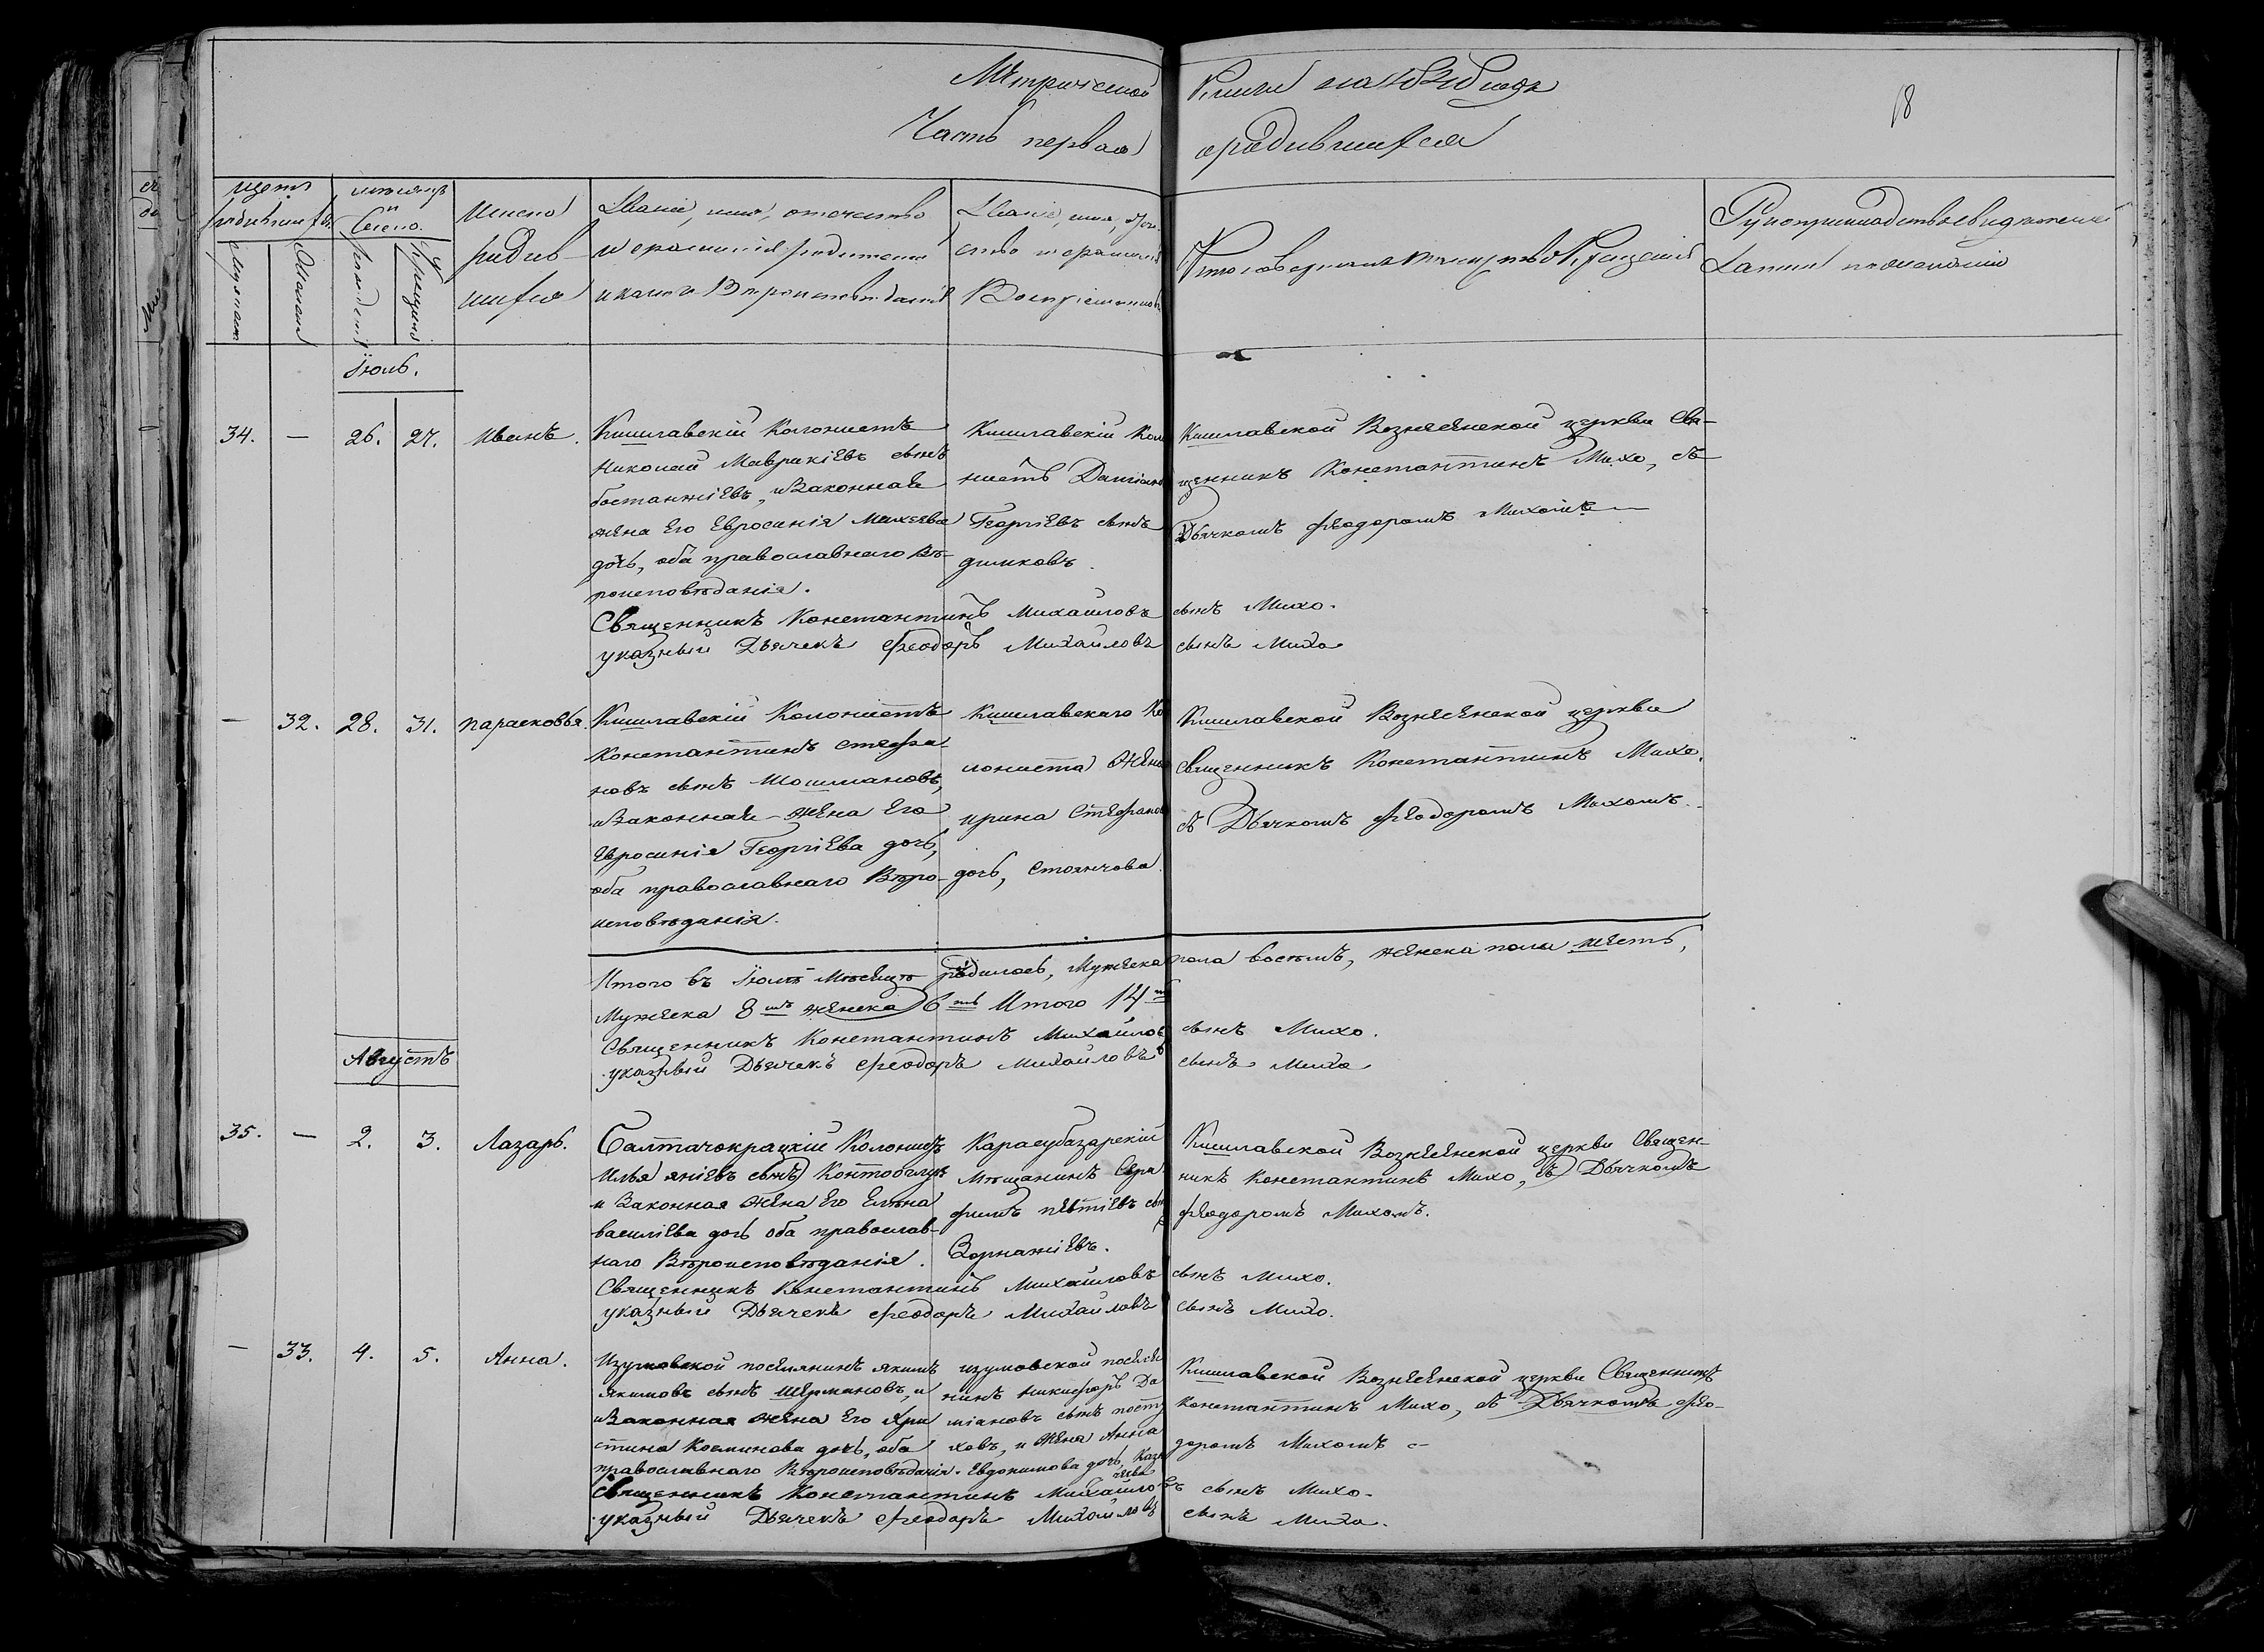 Метрической Книги на 1848 годъ
18
Часть первая о родившихся
щетъ родившихся
мѣсяцъ и число.
Мужеска
Женска
рожденія
крещенія
Имена родив-
шихся
Званіе, имя, отечество
и фамилія родителей
и какого Вѣроисповѣданія
Званіе, имя, отче-
ство и фамилія
Воспріемниковъ
Кто совершалъ таинство Крещенія
Рукоприкладство свидѣтелей
Записи по желанію
Іюль.
34. — 26. 27. Иванъ.
Кишлавскій Колонистъ
Николай Маврикіевъ сынъ
бостанжіевъ, и Законная
жена Его Евросинія Михеева
дочь, оба православнаго Вѣ-
роисповѣданія.
Кишлавскій Коло
нистъ Даміанъ
Георгіевъ сынъ
димковъ.
Кишлавской Вознесенской церкви Свя-
щенникъ Константинъ Михо, съ
Дьячкомъ Феодоромъ Михомъ
Священникъ Константинъ Михайловъ сынъ Михо.
указный Дьячекъ Феодоръ Михайловъ сынъ Михо
— 32. 28. 31. Парасковья.
Кишлавскій Колонистъ
Константинъ Стефа-
новъ сынъ Шошмановъ,
и Законная жена Его
Евросинія Георгіева дочь,
оба православнаго Вѣро-
исповѣданія.
Кишлавскаго Ко
лониста Жена
ирина Стефанов
дочь, Стоянчова.
Кишлавской Вознесенской церкви
Священникъ Константинъ Михо,
съ Дьячкомъ Феодоромъ Михомъ.
Итого въ Іюлѣ Мѣсяцѣ родилось, Мужеска пола восемь, женска пола шесть,
Мужеска 8 мь женска 6 ть Итого 14 ть
Священникъ Константинъ Михайловъ сынъ Михо.
указный Дьячекъ Феодоръ Михайловъ сынъ Михо
Августъ
35. — 2. 3. Лазарь.
Балтачокрацкій Колонистъ
Илья яніевъ сынъ
и Законная жена Его Елена
василіева дочь оба православ-
наго Вѣроисповѣданія.
Карасубазарскій
Мѣщанинъ Сера
фимъ сынъ
Кишлавской Вознесенской церкви Священ-
никъ Константинъ Михо, съ Дьячкомъ
Феодоромъ Михомъ.
Священникъ Константинъ Михайловъ сынъ Михо.
указный Дьячекъ Феодоръ Михайловъ сынъ Михо.
— 33. 4. 5. Анна.
Изумовской поселянинъ якимъ
Якимовъ сынъ Шермановъ, и
и Законная жена Его Хри
стина Козминова дочь, оба
православнаго Вѣроисповѣданія.
изумовской поселя
нинъ никифоръ Да
міановъ сынъ
ховъ, и жена Анна
Евдокимова дочь,
Кишлавской Вознесенской церкви Священникъ
Константинъ Михо, съ Дьячкомъ Фео-
доромъ Михомъ
Священникъ Константинъ Михайловъ сынъ Михо.
указный Дьячекъ Феодоръ Михайловъ сынъ Михо.